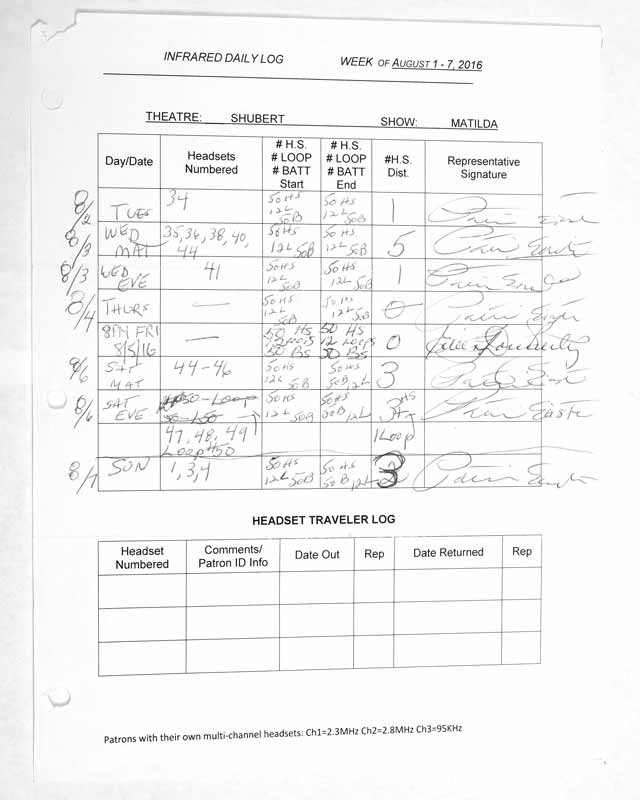 INFRARED DAILY LOG WEEK OF AUGUST 1 - 7, 2016
THEATRE: SHUBERT SHOW: MATILDA
Day/Date Headsets Numbered # H.S. # LOOP # BATT Start # H.S. # LOOP # BATT End #H.S. Dist. Representative Signature
8/2 TUES 34 50 HS 12 L 50B 50 HS 12 L 50B 1
8/3 WED MAT 35, 36, 38, 40, 44 50 HS 12 L 50B 50 HS 12 L 50B 5
8/3 WED EVE 41 50 HS 12 L 50B 50 HS 12 L 50B 1
8/4 THURS — 50 HS 12 L 50B 50 HS 12 L 50B 0
8PM FRI 8/5/16 — 50 HS 12 Loops 50 BS 50 HS 12 Loops 50 BS 0
8/6 SAT MAT 44-46 50 HS 12 L 50B 50 HS 12 L 50B 3
8/6 SAT EVE 50 HS 12 L 50B 50 HS 50B 12 L 3 HS
47, 48, 49 LOOP #50 1 Loop
8/7 SUN 1, 3, 4 50 HS 12 L 50B 50 HS 50B 12 L 3
HEADSET TRAVELER LOG
Headset Numbered Comments/ Patron ID Info Date Out Rep Date Returned Rep
Patrons with their own multi-channel headsets: Ch1=2.3MHz Ch2=2.8MHz Ch3=95KHz